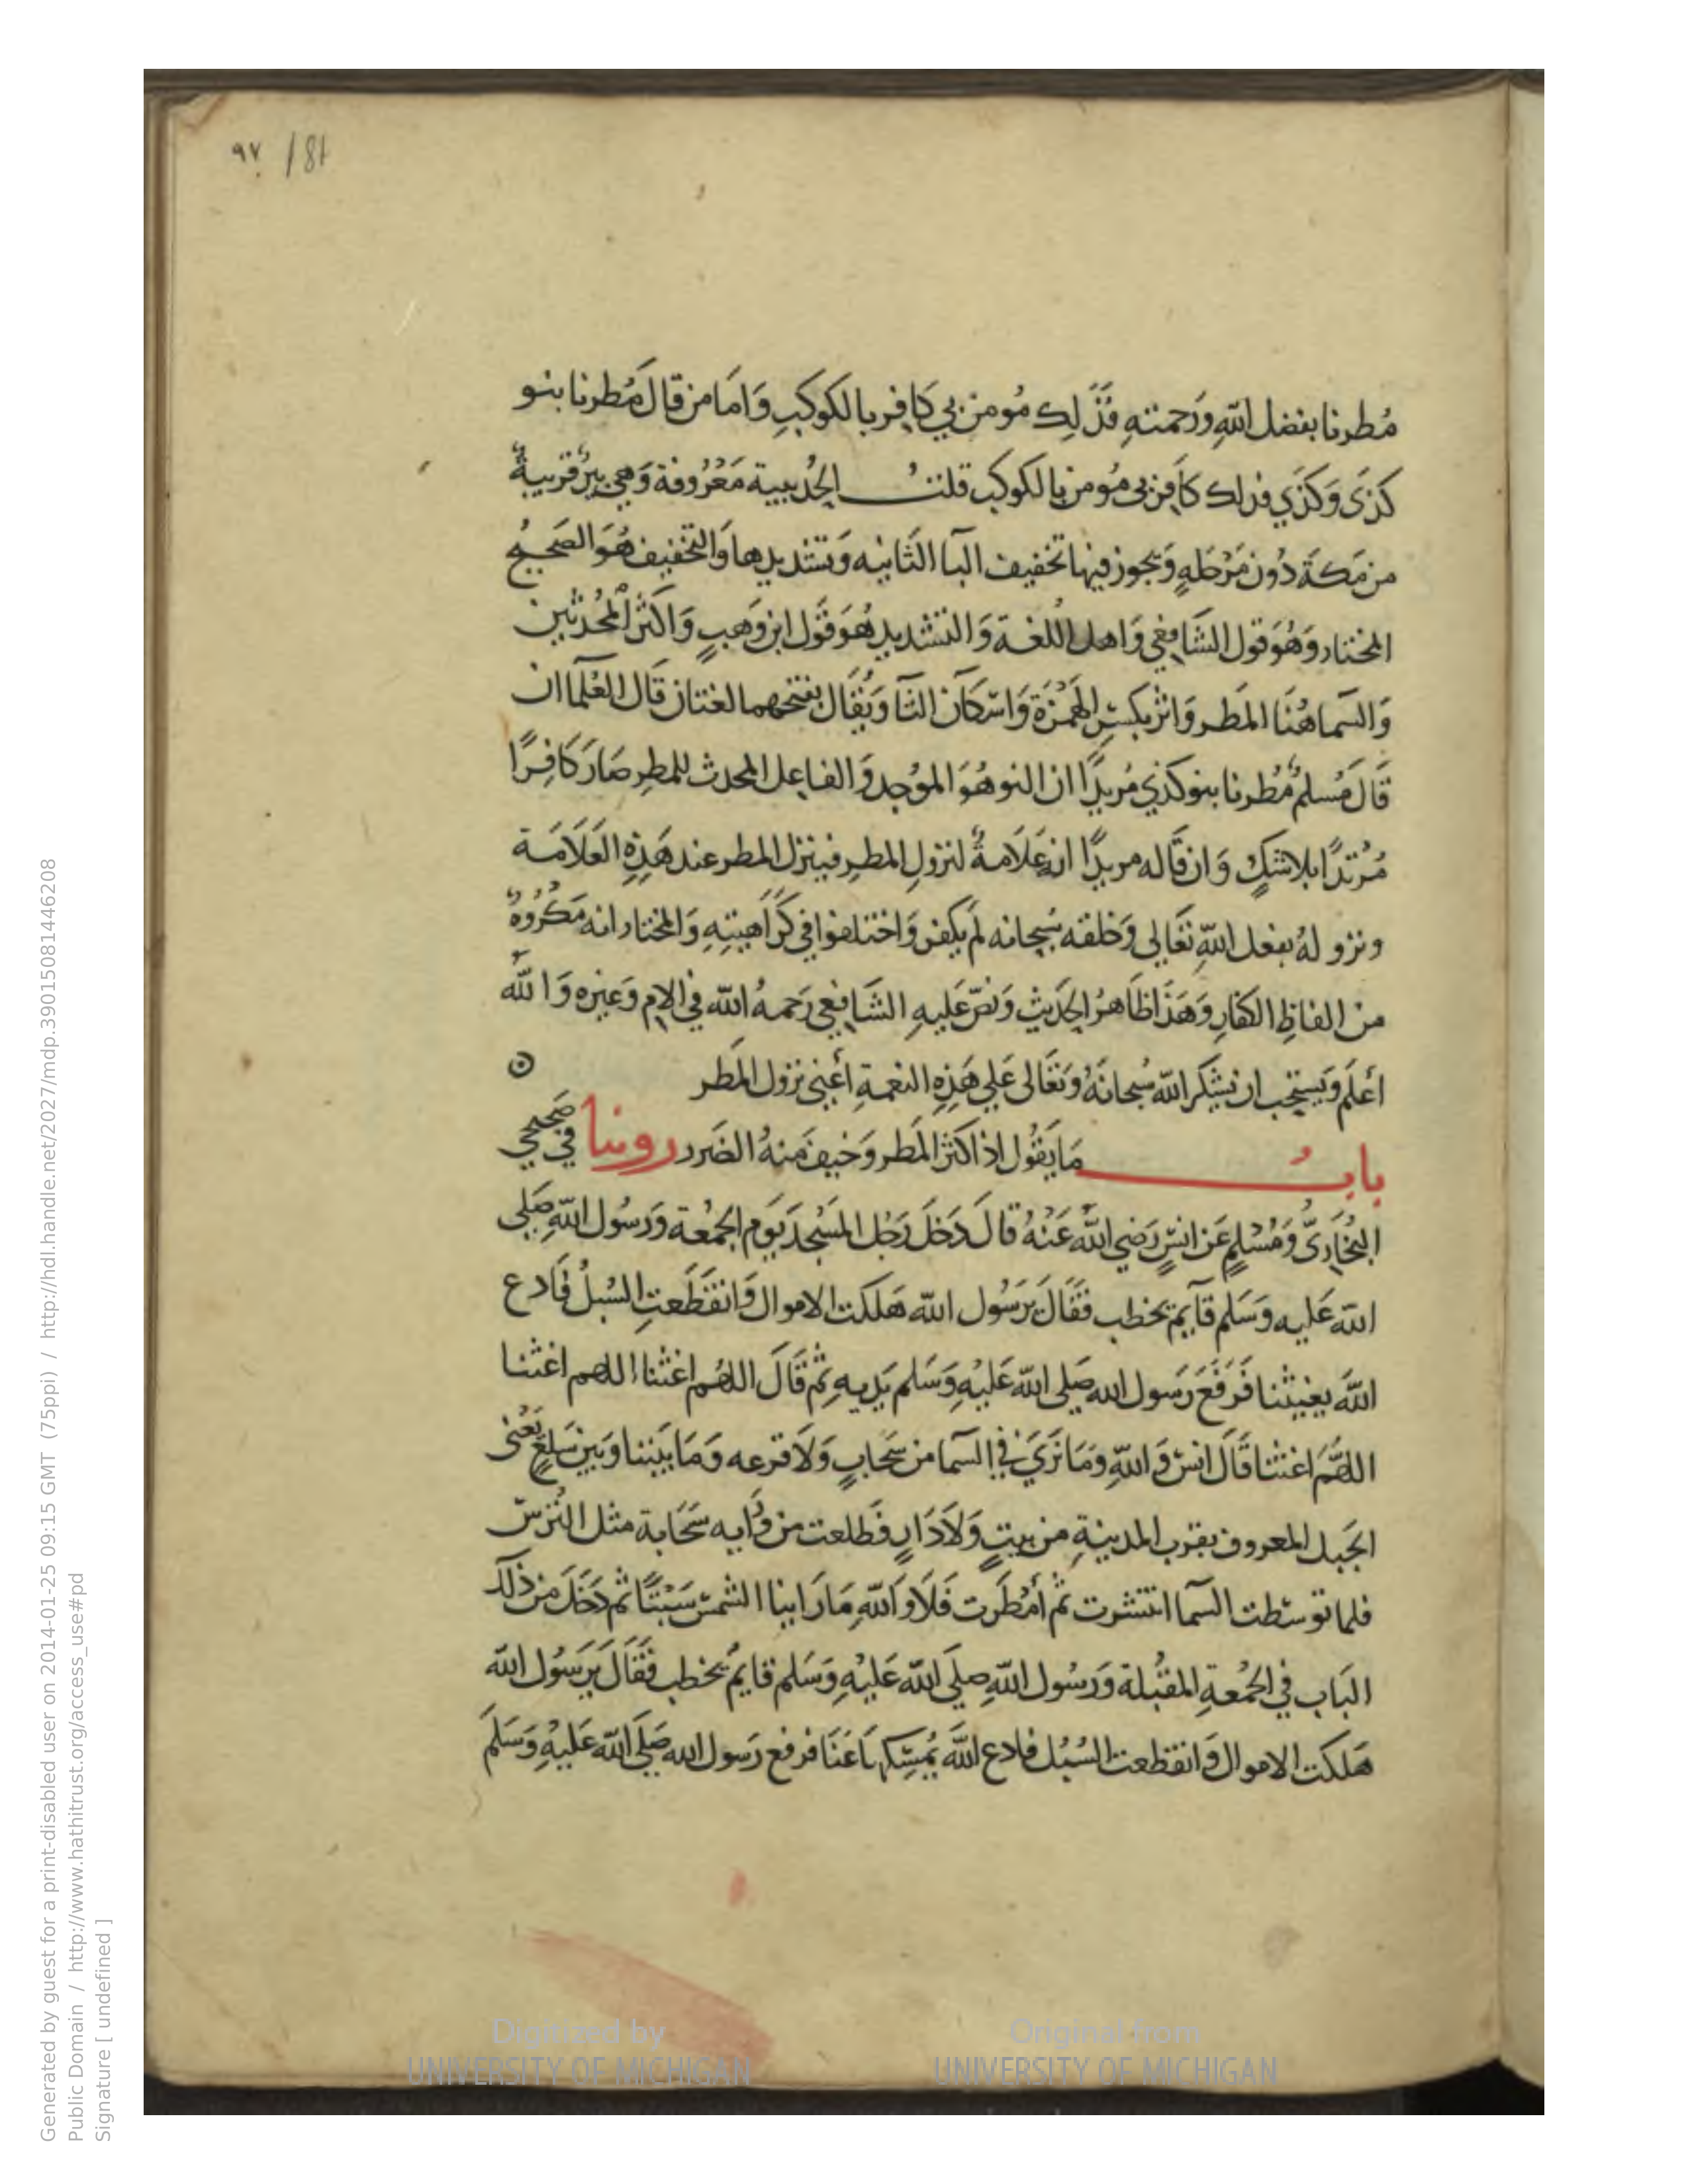 ٩٧ / 81
مُطرنا بفضل اللهِ ورَحمتهِ فَذَلِك مُومن بي كَافِر بالكوكبِ وَامَا من قالَ مُطرنا بنو
كَذَى وَكَذَي فذلك كَافِر بى مُومن بالكوكب قلتُ الحُديبية مَعْرُوفة وَهي بيرٌ قريبةٌ
من مَكة دُون مَرْحَلهٍ وَيجوز فيها تخفيف اليآ الثَانيه وَتشديدها وَالتخفيف هُوَ الصَحيحُ
المختار وَهُوَ قول الشَافِعي وَاهل اللُغة وَالتشديد هُوَ قَول ابن وَهبٍ وَاكثر المُحُدثين
وَالسَما هُنَا المَطر وَاثر بكسْرِ الهَمزَة وَاسْكَان الثآ وَيُقَال بفتحهما لغتان قَال العُلمَآ ان
قَالَ مُسلمٌ مُطرنا بنو كذي مُريدًا ان النو هُوَ الموُجد وَالفاعل المحدث للمطرِ صَارَ كَافِرًا
مُرْتدًا بلا شكٍ وَان قَاله مريدًا انه عَلَامةٌ لنزولِ المطرِ فينزل المطر عند هَذِهِ العَلَامَة
ونزولهُ بفعل اللهِ تعَالى وَخلقه سُبحانه لَم يكفر وَاختلفوا في كَرَاهيتِهِ وَالمختار انه مَكرُوهٌ
من الفاظِ الكفارِ وَهَذَا ظَاهرُ الحَديثِ وَنصّ عَليهِ الشَافعِي رَحمهُ الله في الامِ وَغيره وَاللهُ
أعلَم وَيستحب ان يشكر الله سُبحانَهُ وَتعَالى عَلي هَذِهِ النعمةِ أعني نزول المَطر
بابُ مَا يَقُول اذا كثر المَطر وَخيف منهُ الضَرر روينا في صَحيحي
البُخاريّ وَمُسْلمٍ عَن انسٍ رَضي اللهُ عَنْهُ قالَ دَخَلَ رَجُل المَسْجدَ يَوم الجمُعة وَرَسُول اللهِ صَلى
الله عَليه وَسَلم قآيم يخطب فقَالَ يَرَسُول الله هَلكت الاموال وَانقَطَعتِ السُبلُ فَادع
اللهَ يغيثنا فَرَفَعَ رَسول الله صَلى الله عَليْهِ وَسَلم يَديه ثمَ قَالَ اللهُم اغثنا اللهم اغثنا
اللهُمَ اغثنا قَالَ انس وَاللهِ وَمَا نَرَيَ في السَما من سَحابٍ وَلَا قزعه وَمَا بَيننا وَبين سَلعٍ يَعْنى
الجَبل المعروف بقرب المدينةِ من بيتٍ وَلَا دَارٍ فَطلعت من وَرَايه سَحَابة مثل التُرسِ
فلما توسّطت السَما انتشرت ثم أمْطَرت فَلَا وَاللهِ مَا رَاينا الشمسَ سَبْتًا ثم دَخَلَ من ذلك
البَاب في الجمُعةِ المقُبلة وَرسُول اللهِ صلى الله عَليْهِ وَسَلم قايمٌ يخطب فقَالَ يَرسُول الله
هَلكت الاموال وَانقطعت السُبُل فادع اللهَ يُمسِكهَا عَنَا فرفع رَسول الله صَلى الله عَليْهِ وَسَلمَ
Generated by guest for a print-disabled user on 2014-01-25 09:15 GMT (75ppi) / http://hdl.handle.net/2027/mdp.39015081446208
Public Domain / http://www.hathitrust.org/access_use#pd
Signature [ undefined ]
Digitized by
UNIVERSITY OF MICHIGAN
Original from
UNIVERSITY OF MICHIGAN